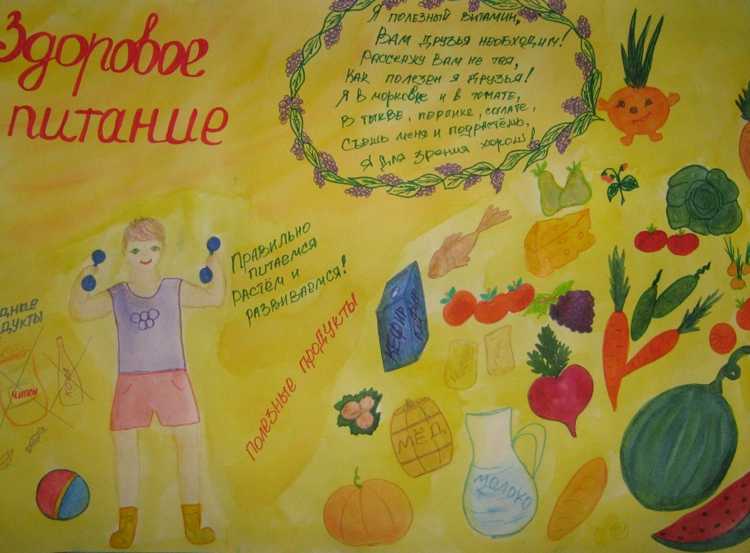 Здоровое
питание
Я полезный витамин,
Вам друзья необходим!
Расскажу вам не тая,
Как полезен я друзья!
Я в морковке и в томате,
В тыкве, персике, салате,
Съешь меня и подрастёшь,
Я для зрения хорош!
Правильно
питаемся
растём и
развиваемся!
Полезные продукты
дные
дукты
Чипсы
Кефир
Мёд
Молоко